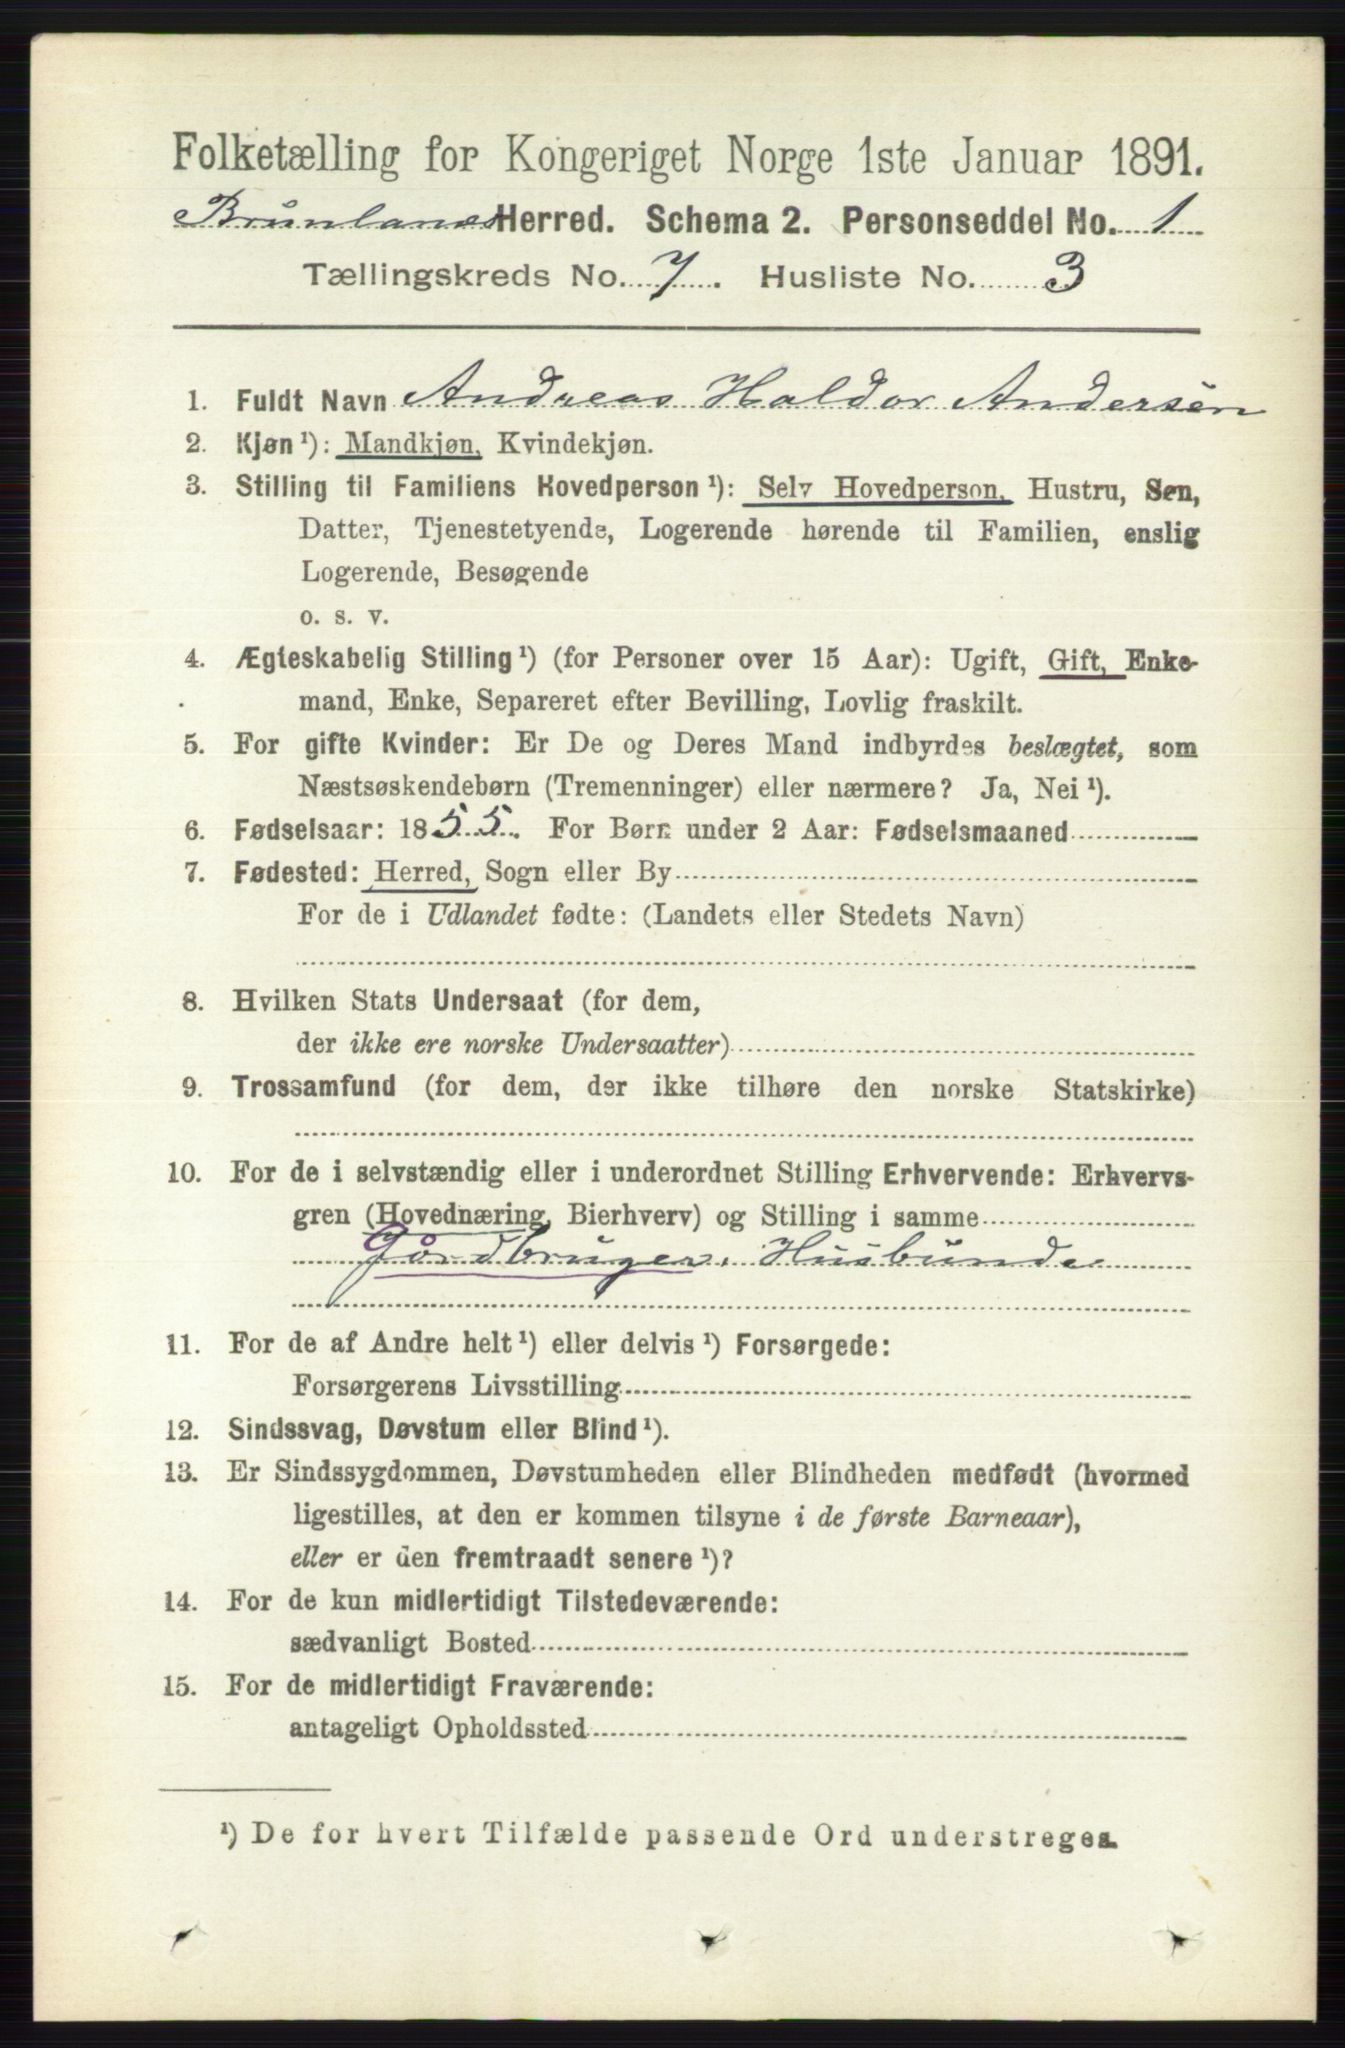 Folketælling for Kongeriget Norge 1ste Januar 1891.
Brunlanes Herred. Schema 2. Personseddel No. 1
Tællingskreds No. 7. Husliste No. 3
1. Fuldt Navn Andreas Haldor Andersen
2. Kjøn ¹): Mandkjøn, Kvindekjøn.
3. Stilling til Familiens Hovedperson ¹): Selv Hovedperson, Hustru, Søn,
Datter, Tjenestetyende, Logerende hørende til Familien, enslig
Logerende, Besøgende
o. s. v.
4. Ægteskabelig Stilling ¹) (for Personer over 15 Aar): Ugift, Gift, Enke-
mand, Enke, Separeret efter Bevilling, Lovlig fraskilt.
5. For gifte Kvinder: Er De og Deres Mand indbyrdes beslægtet, som
Næstsøskendebørn (Tremenninger) eller nærmere? Ja, Nei ¹).
6. Fødselsaar: 1855. For Børn under 2 Aar: Fødselsmaaned
7. Fødested: Herred, Sogn eller By
For de i Udlandet fødte: (Landets eller Stedets Navn)
8. Hvilken Stats Undersaat (for dem,
der ikke ere norske Undersaatter)
9. Trossamfund (for dem, der ikke tilhøre den norske Statskirke)
10. For de i selvstændig eller i underordnet Stilling Erhvervende: Erhvervs-
gren (Hovednæring, Bierhverv) og Stilling i samme
Jordbruger, Husbunde
11. For de af Andre helt ¹) eller delvis ¹) Forsørgede:
Forsørgerens Livsstilling
12. Sindssvag, Døvstum eller Blind ¹).
13. Er Sindssygdommen, Døvstumheden eller Blindheden medfødt (hvormed
ligestilles, at den er kommen tilsyne i de første Barneaar),
eller er den fremtraadt senere ¹)?
14. For de kun midlertidigt Tilstedeværende:
sædvanligt Bosted
15. For de midlertidigt Fraværende:
antageligt Opholdssted
¹) De for hvert Tilfælde passende Ord understreges.